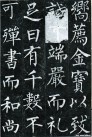 嚮薦金寶以致
誠仰端嚴而礼
足日有千數不
可殫書而和尚